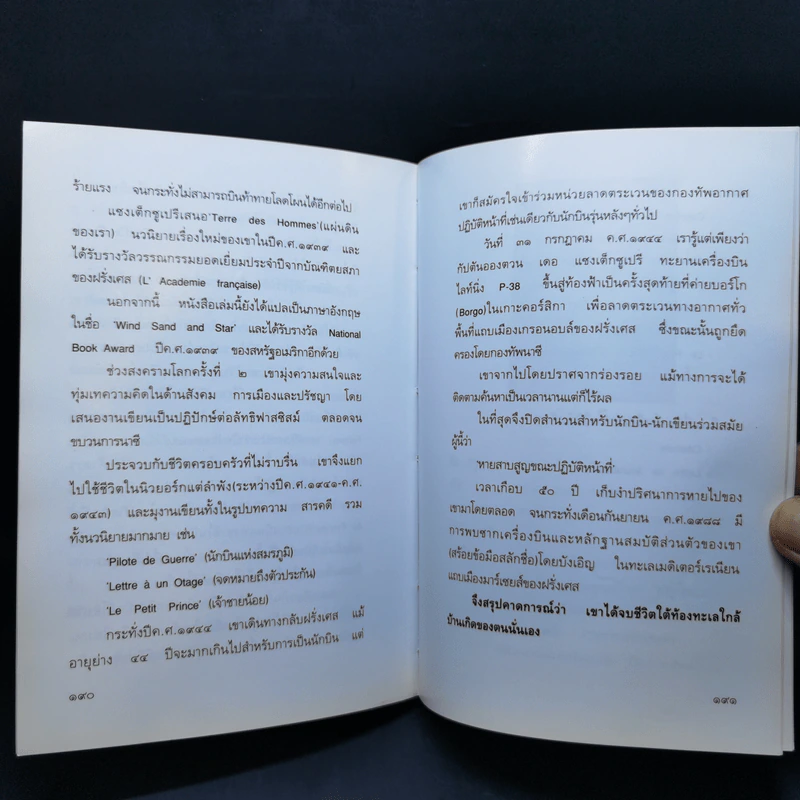 ร้ายแรง จนกระทั่งไม่สามารถบินท้าทายโลดโผนได้อีกต่อไป
แซงเต็กซูเปริเสนอ'Terre des Hommes'(แผ่นดิน
ของเรา) นวนิยายเรื่องใหม่ของเขาในปีค.ศ.๑๙๓๙ และ
ได้รับรางวัลวรรณกรรมยอดเยี่ยมประจำปีจากบัณฑิตยสภา
ของฝรั่งเศส (L' Academie française)
นอกจากนี้ หนังสือเล่มนี้ยังได้แปลเป็นภาษาอังกฤษ
ในชื่อ 'Wind Sand and Star' และได้รับรางวัล National
Book Award ปีค.ศ.๑๙๓๙ ของสหรัฐอเมริกาอีกด้วย
ช่วงสงครามโลกครั้งที่ ๒ เขามุ่งความสนใจและ
ทุ่มเทความคิดในด้านสังคม การเมืองและปรัชญา โดย
เสนองานเขียนเป็นปฏิปักษ์ต่อลัทธิฟาสซิสม์ ตลอดจน
ขบวนการนาซี
ประจวบกับชีวิตครอบครัวที่ไม่ราบรื่น เขาจึงแยก
ไปใช้ชีวิตในนิวยอร์กแต่ลำพัง(ระหว่างปีค.ศ.๑๙๔๑-ค.ศ.
๑๙๔๓) และมุงานเขียนทั้งในรูปบทความ สารคดี รวม
ทั้งนวนิยายมากมาย เช่น
'Pilote de Guerre' (นักบินแห่งสมรภูมิ)
'Lettre à un Otage' (จดหมายถึงตัวประกัน)
'Le Petit Prince' (เจ้าชายน้อย)
กระทั่งปีค.ศ.๑๙๔๔ เขาเดินทางกลับฝรั่งเศส แม้
อายุย่าง ๔๔ ปีจะมากเกินไปสำหรับการเป็นนักบิน แต่
๑๙๐
เขาก็สมัครใจเข้าร่วมหน่วยลาดตระเวนของกองทัพอากาศ
ปฏิบัติหน้าที่เช่นเดียวกับนักบินรุ่นหลังๆทั่วไป
วันที่ ๓๑ กรกฎาคม ค.ศ.๑๙๔๔ เรารู้แต่เพียงว่า
กัปตันอองตวน เดอ แซงเต็กซูเปรี ทะยานเครื่องบิน
ไลท์นิ่ง P-38 ขึ้นสู่ท้องฟ้าเป็นครั้งสุดท้ายที่ค่ายบอร์โก
(Borgo)ในเกาะคอร์สิกา เพื่อลาดตระเวนทางอากาศทั่ว
พื้นที่แถบเมืองเกรอนอบล์ของฝรั่งเศส ซึ่งขณะนั้นถูกยึด
ครองโดยกองทัพนาซี
เขาจากไปโดยปราศจากร่องรอย แม้ทางการจะได้
ติดตามค้นหาเป็นเวลานานแต่ก็ไร้ผล
ในที่สุดจึงปิดสำนวนสำหรับนักบิน-นักเขียนร่วมสมัย
ผู้นี้ว่า
'หายสาบสูญขณะปฏิบัติหน้าที่'
เวลาเกือบ ๕๐ ปี เก็บงำปริศนาการหายไปของ
เขามาโดยตลอด จนกระทั่งเดือนกันยายน ค.ศ.๑๙๘๘ มี
การพบซากเครื่องบินและหลักฐานสมบัติส่วนตัวของเขา
(สร้อยข้อมือสลักชื่อ)โดยบังเอิญ ในทะเลเมดิเตอร์เรเนียน
แถบเมืองมาร์เซยส์ของฝรั่งเศส
จึงสรุปคาดการณ์ว่า เขาได้จบชีวิตใต้ท้องทะเลใกล้
บ้านเกิดของตนนั่นเอง
๑๙๑